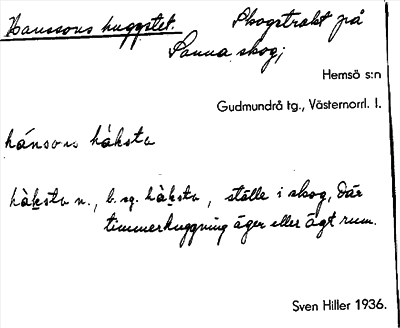 Hanssons huggstet Skogstrakt på
Sanna skog;
Hemsö s:n
Gudmundrå tg., Västernorrl. l.
hánsons hàksta
hàksta n., b. sg. hàksta, ställe i skog, där
timmerhuggning äger eller ägt rum.
Sven Hiller 1936.